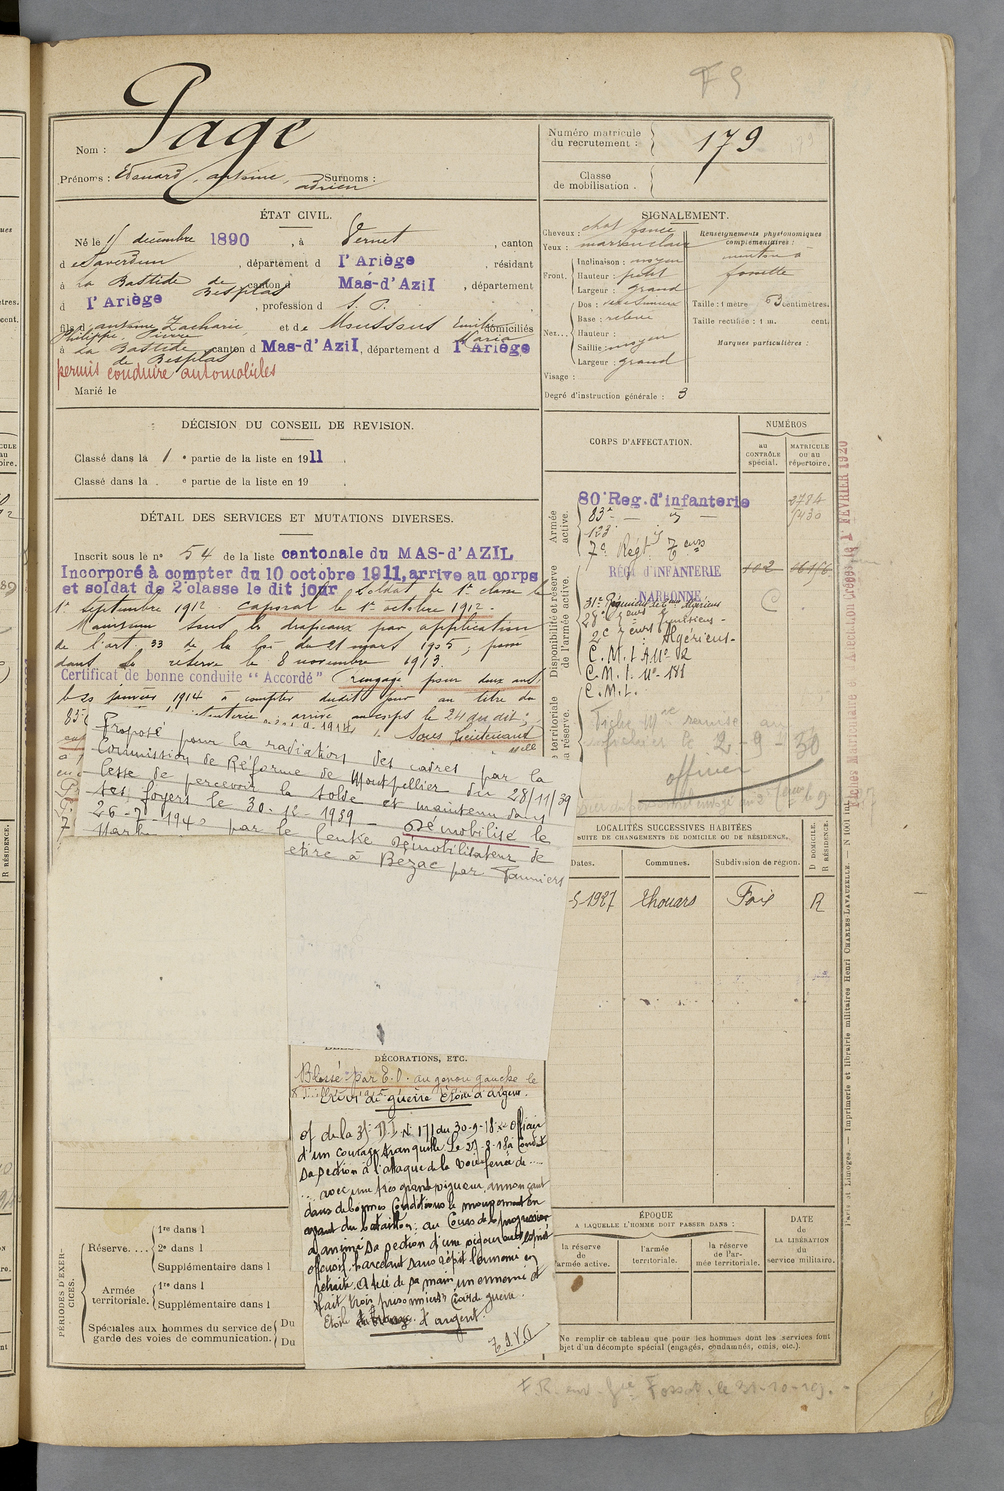 F 9
Nom : Page
Prénoms : Edouard, antoine, adrien Surnoms :
Numéro matricule
du recrutement : 179
Classe
de mobilisation .
ÉTAT CIVIL.
Né le 15 décembre 1890 , à Vernet , canton
de Saverdun , département d l'Ariège , résidant
à La Bastide de Besplas canton d Mas-d'Azil , département
d l'Ariège , profession d S. P.
fils d antoine Zacharie Philippe, Pierre et de Moussous Emilie Maria domiciliés
à La Bastide de Besplas canton d Mas-d'Azil , département d l'Ariège
permis conduire automobiles
Marié le
SIGNALEMENT.
Cheveux : chat foncé
Yeux : marron clair
Front. Inclinaison : moyen
Hauteur : petit
Largeur : grand
Nez... Dos :
Base : relevée
Hauteur :
Saillie : moyen
Largeur : grand
Visage :
Degré d'instruction générale : 3
Renseignements physionomiques
complémentaires :
menton à
fossette
Taille : 1 mètre 63 centimètres.
Taille rectifiée : 1 m. cent.
Marques particulières :
DÉCISION DU CONSEIL DE REVISION.
Classé dans la 1 e partie de la liste en 1911 .
Classé dans la . e partie de la liste en 19 .
DÉTAIL DES SERVICES ET MUTATIONS DIVERSES.
Inscrit sous le no 54 de la liste cantonale du MAS-d'AZIL
Incorporé à compter du 10 octobre 1911, arrive au corps
et soldat de 2e classe le dit jour Soldat de 1re classe le
1er septembre 1912 Caporal le 1er octobre 1912.
Maintenu sous les drapeaux par application
de l'art. 33 de la loi du 21 mars 1905 ; passé
dans la réserve le 8 novembre 1913.
Certificat de bonne conduite "Accordé" rengagé pour deux ans
le 23 janvier 1914 à compter dudit jour au titre du
83e arrivé au corps le 24 du dit ;
Sous Lieutenant
Proposé pour la radiation des cadres par la
Commission de Réforme de Montpellier du 28/11/39
Cesse de percevoir la solde et maintenu dans
ses foyers le 30-12-1939 - Démobilisé le
26-7-1940 par le centre démobilisateur de
se retire à Bézac par Pamiers
CORPS D'AFFECTATION.
NUMÉROS
au
CONTRÔLE
spécial.
MATRICULE
OU AU
répertoire.
Armée
active.
80e Reg. d'infanterie 2784
83e — d° — 7430
123e
7e Régt
RÉGt D'INFANTERIE 102
NARBONNE
Disponibilité et réserve
de l'armée active.
C. M. I. No 182
C. M. I. No 181
C. M. I.
Fiche Mle remise au
fichier le 2-9-30
officier
LOCALITÉS SUCCESSIVES HABITÉES
SUITE DE CHANGEMENTS DE DOMICILE OU DE RÉSIDENCE.
Dates. Communes. Subdivision de région. D DOMICILE. R RÉSIDENCE.
5-1927 Thouars Foix R
DÉCORATIONS, ETC.
Blessé par E.O. au genou gauche le
Croix de guerre Etoile d'argent.
O/ de la 35e D.I. No 171 du 30-9-18 « Officier
d'un courage tranquille. Le 29-8-18 a conduit
sa section à l'attaque de la voie ferrée de ...
... avec une très grande vigueur, annonçant
dans de bonnes conditions le mouvement en
avant du bataillon. au cours de la progression
a animé sa section d'une vigoureux esprit
offensif, harcelant sans répit l'ennemi en
retraite. A tué de sa main un ennemi et
fait trois prisonniers » Croix de guerre.
Etoile d'argent.
T.S.V.P.
PÉRIODES D'EXERCICES.
Réserve.... 1re dans l
2e dans l
Supplémentaire dans l
Armée
territoriale. 1re dans l
Supplémentaire dans l
Spéciales aux hommes du service de
garde des voies de communication. Du
Du
ÉPOQUE
A LAQUELLE L'HOMME DOIT PASSER DANS :
la réserve
de
l'armée active.
l'armée
territoriale.
la réserve
de l'ar-
mée territoriale.
DATE
de
LA LIBÉRATION
du
service militaire.
Ne remplir ce tableau que pour les hommes dont les services font
objet d'un décompte spécial (engagés, condamnés, omis, etc.).
Paris et Limoges. — Imprimerie et librairie militaires Henri CHARLES-LAVAUZELLE. — N° 1001